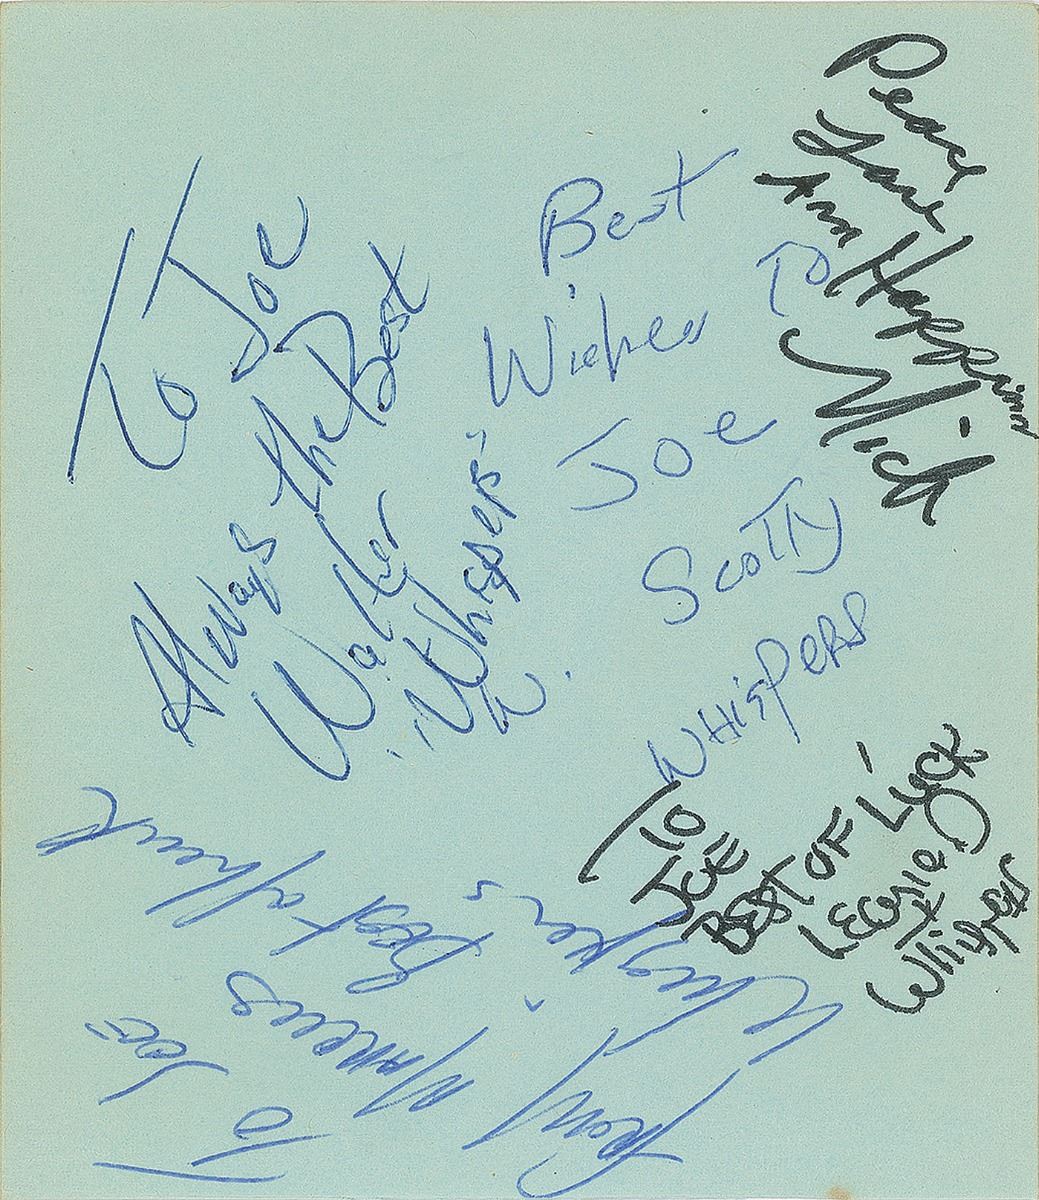 To Joe
Always the Best
Walter
"Whispers"
W.
Best
Wishes To
Joe
Scotty
WHispers
Peace
Love
Ann Happiness
Nick
To
JOE
BEST OF LUCK
Leavie
Whispers
To Joe
Best of luck
Marcus
"Whispers"